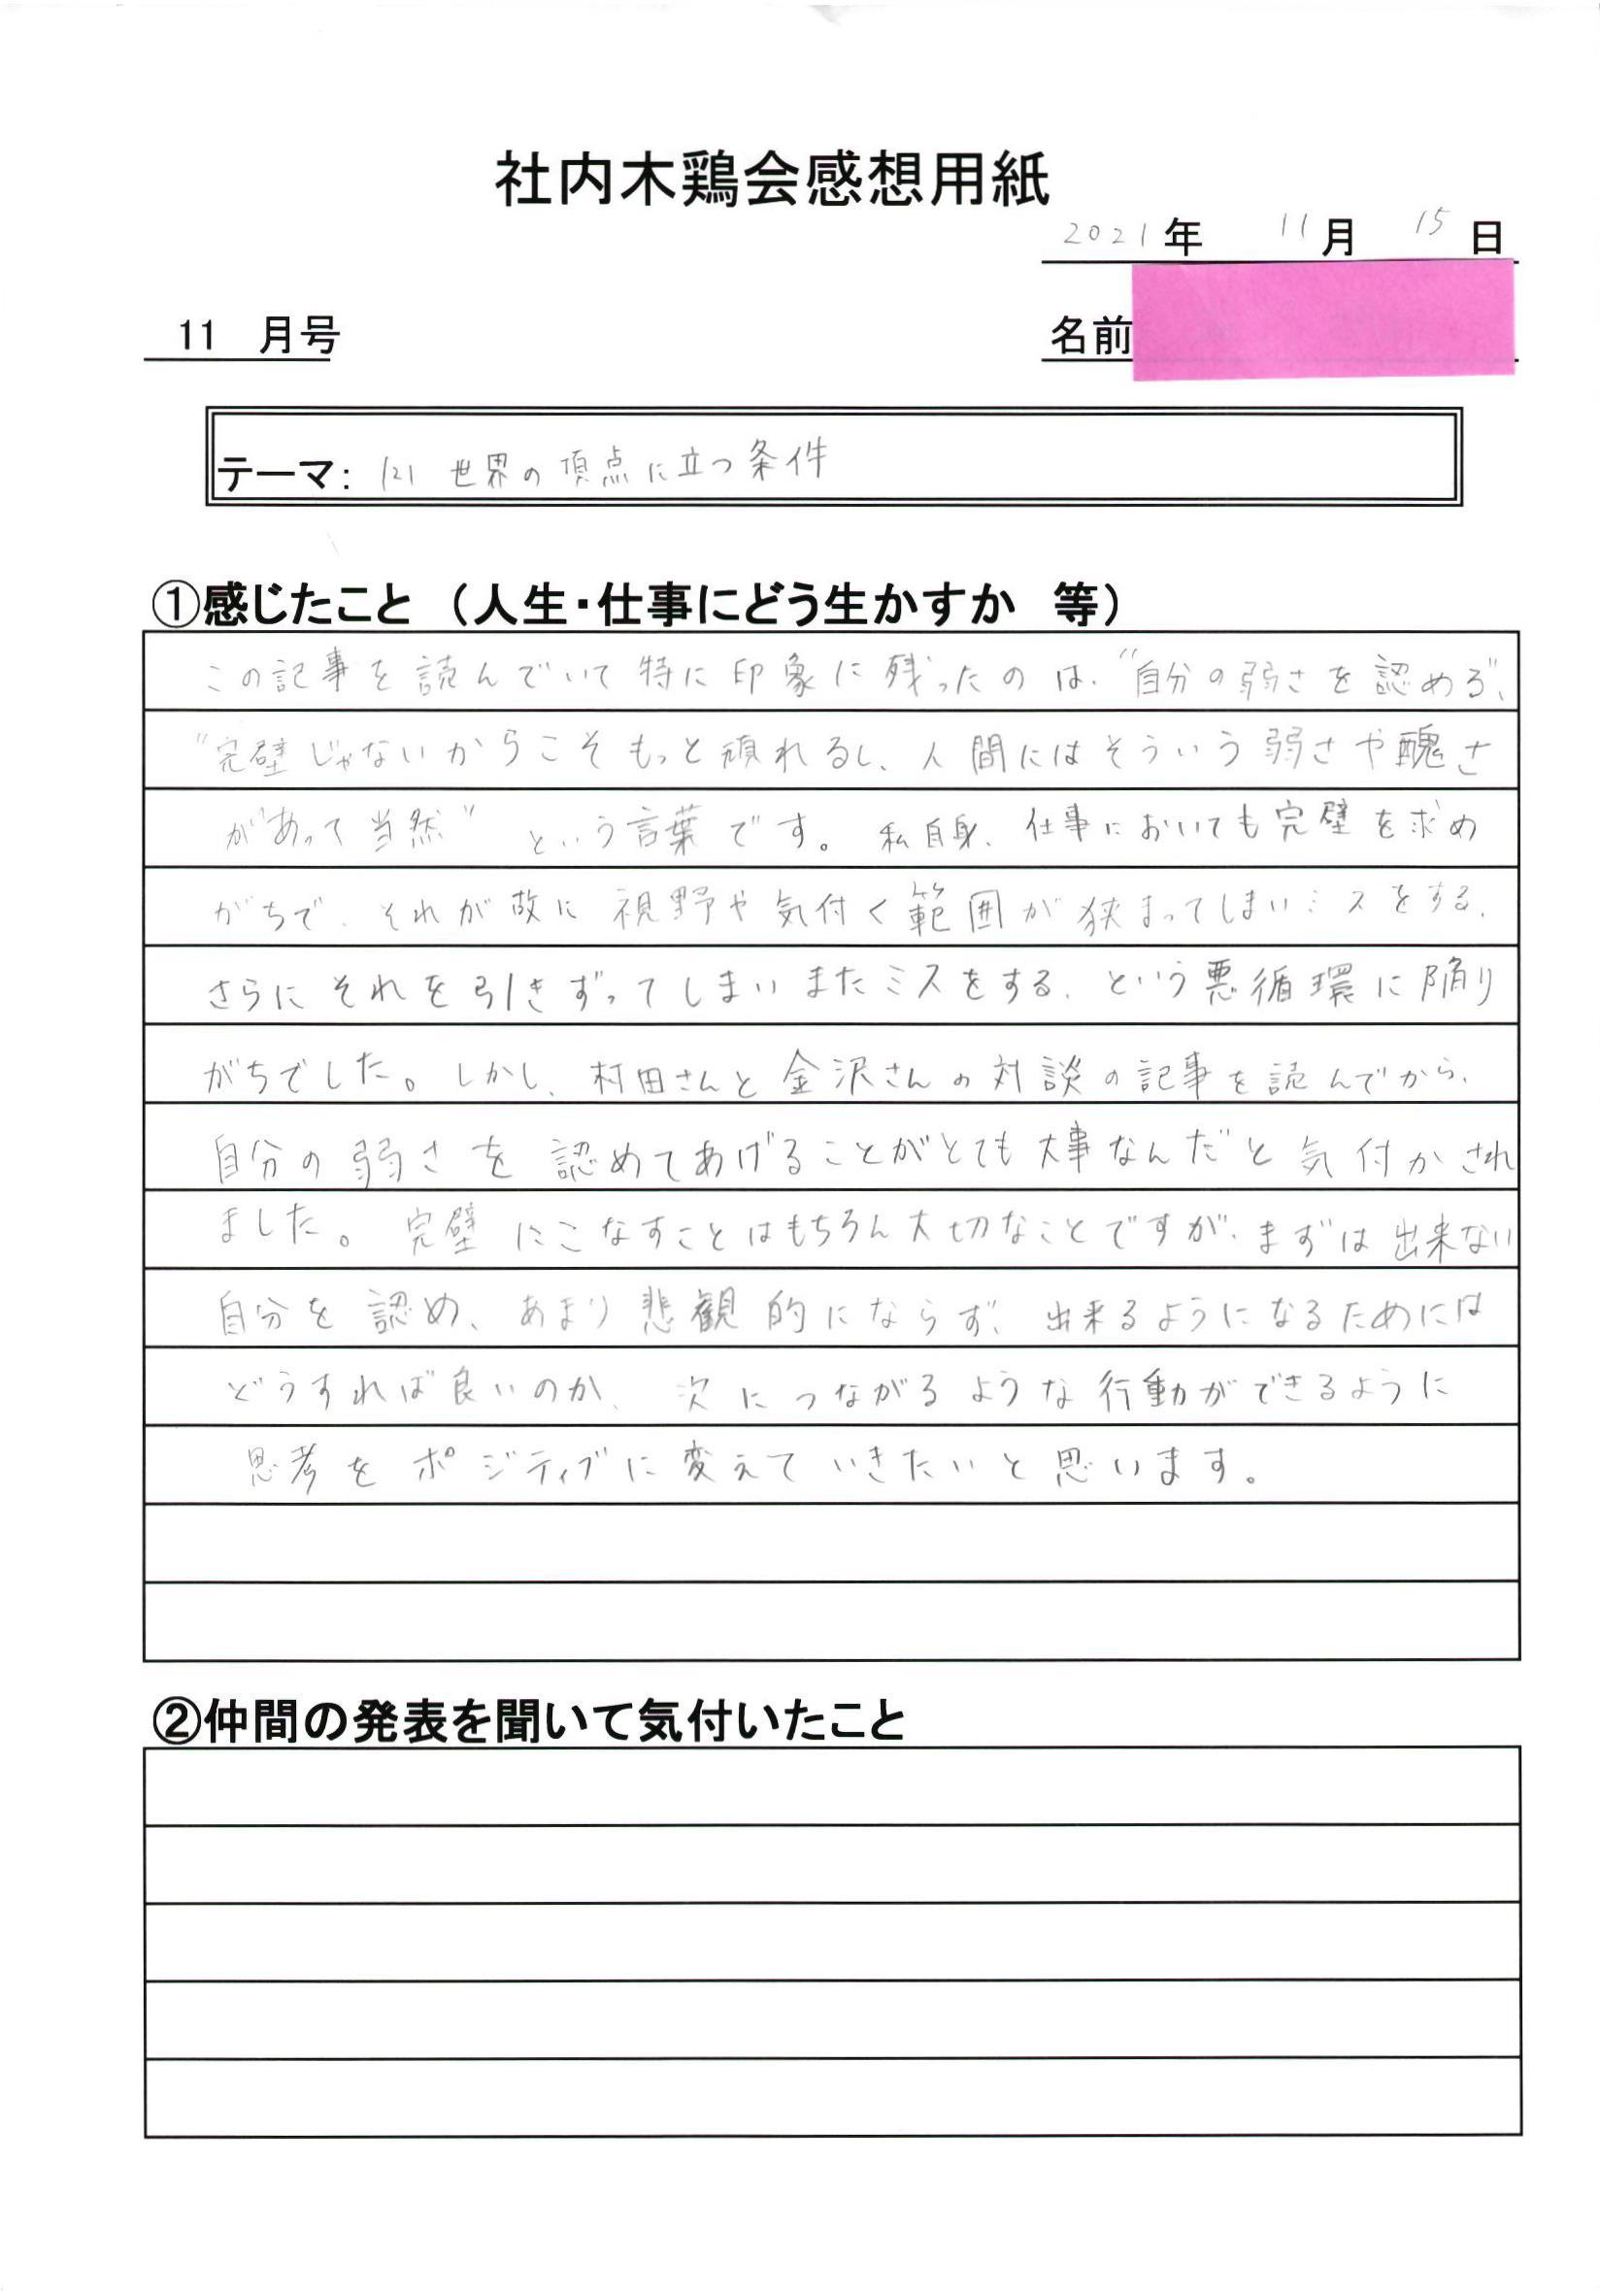 社内木鶏会感想用紙
2021年 11月 15日
11 月号
名前
テーマ: (2) 世界の頂点に立つ条件
①感じたこと (人生・仕事にどう生かすか 等)
この記事を読んでいて特に印象に残ったのは、“自分の弱さを認める”、
“完璧じゃないからこそもっと頑れるし、人間にはそういう弱さや醜さ
があって当然” という言葉です。私自身、仕事においても完璧を求め
がちで、それが故に視野や気付く範囲が狭まってしまいミスをする、
さらにそれを引きずってしまいまたミスをする、という悪循環に陥り
がちでした。しかし、村田さんと金沢さんの対談の記事を読んでから、
自分の弱さを認めてあげることがとても大事なんだと気付かされ
ました。完璧にこなすことはもちろん大切なことですが、まずは出来ない
自分を認め、あまり悲観的にならず、出来るようになるためには
どうすれば良いのか、次につながるような行動ができるように
思考をポジティブに変えていきたいと思います。
②仲間の発表を聞いて気付いたこと